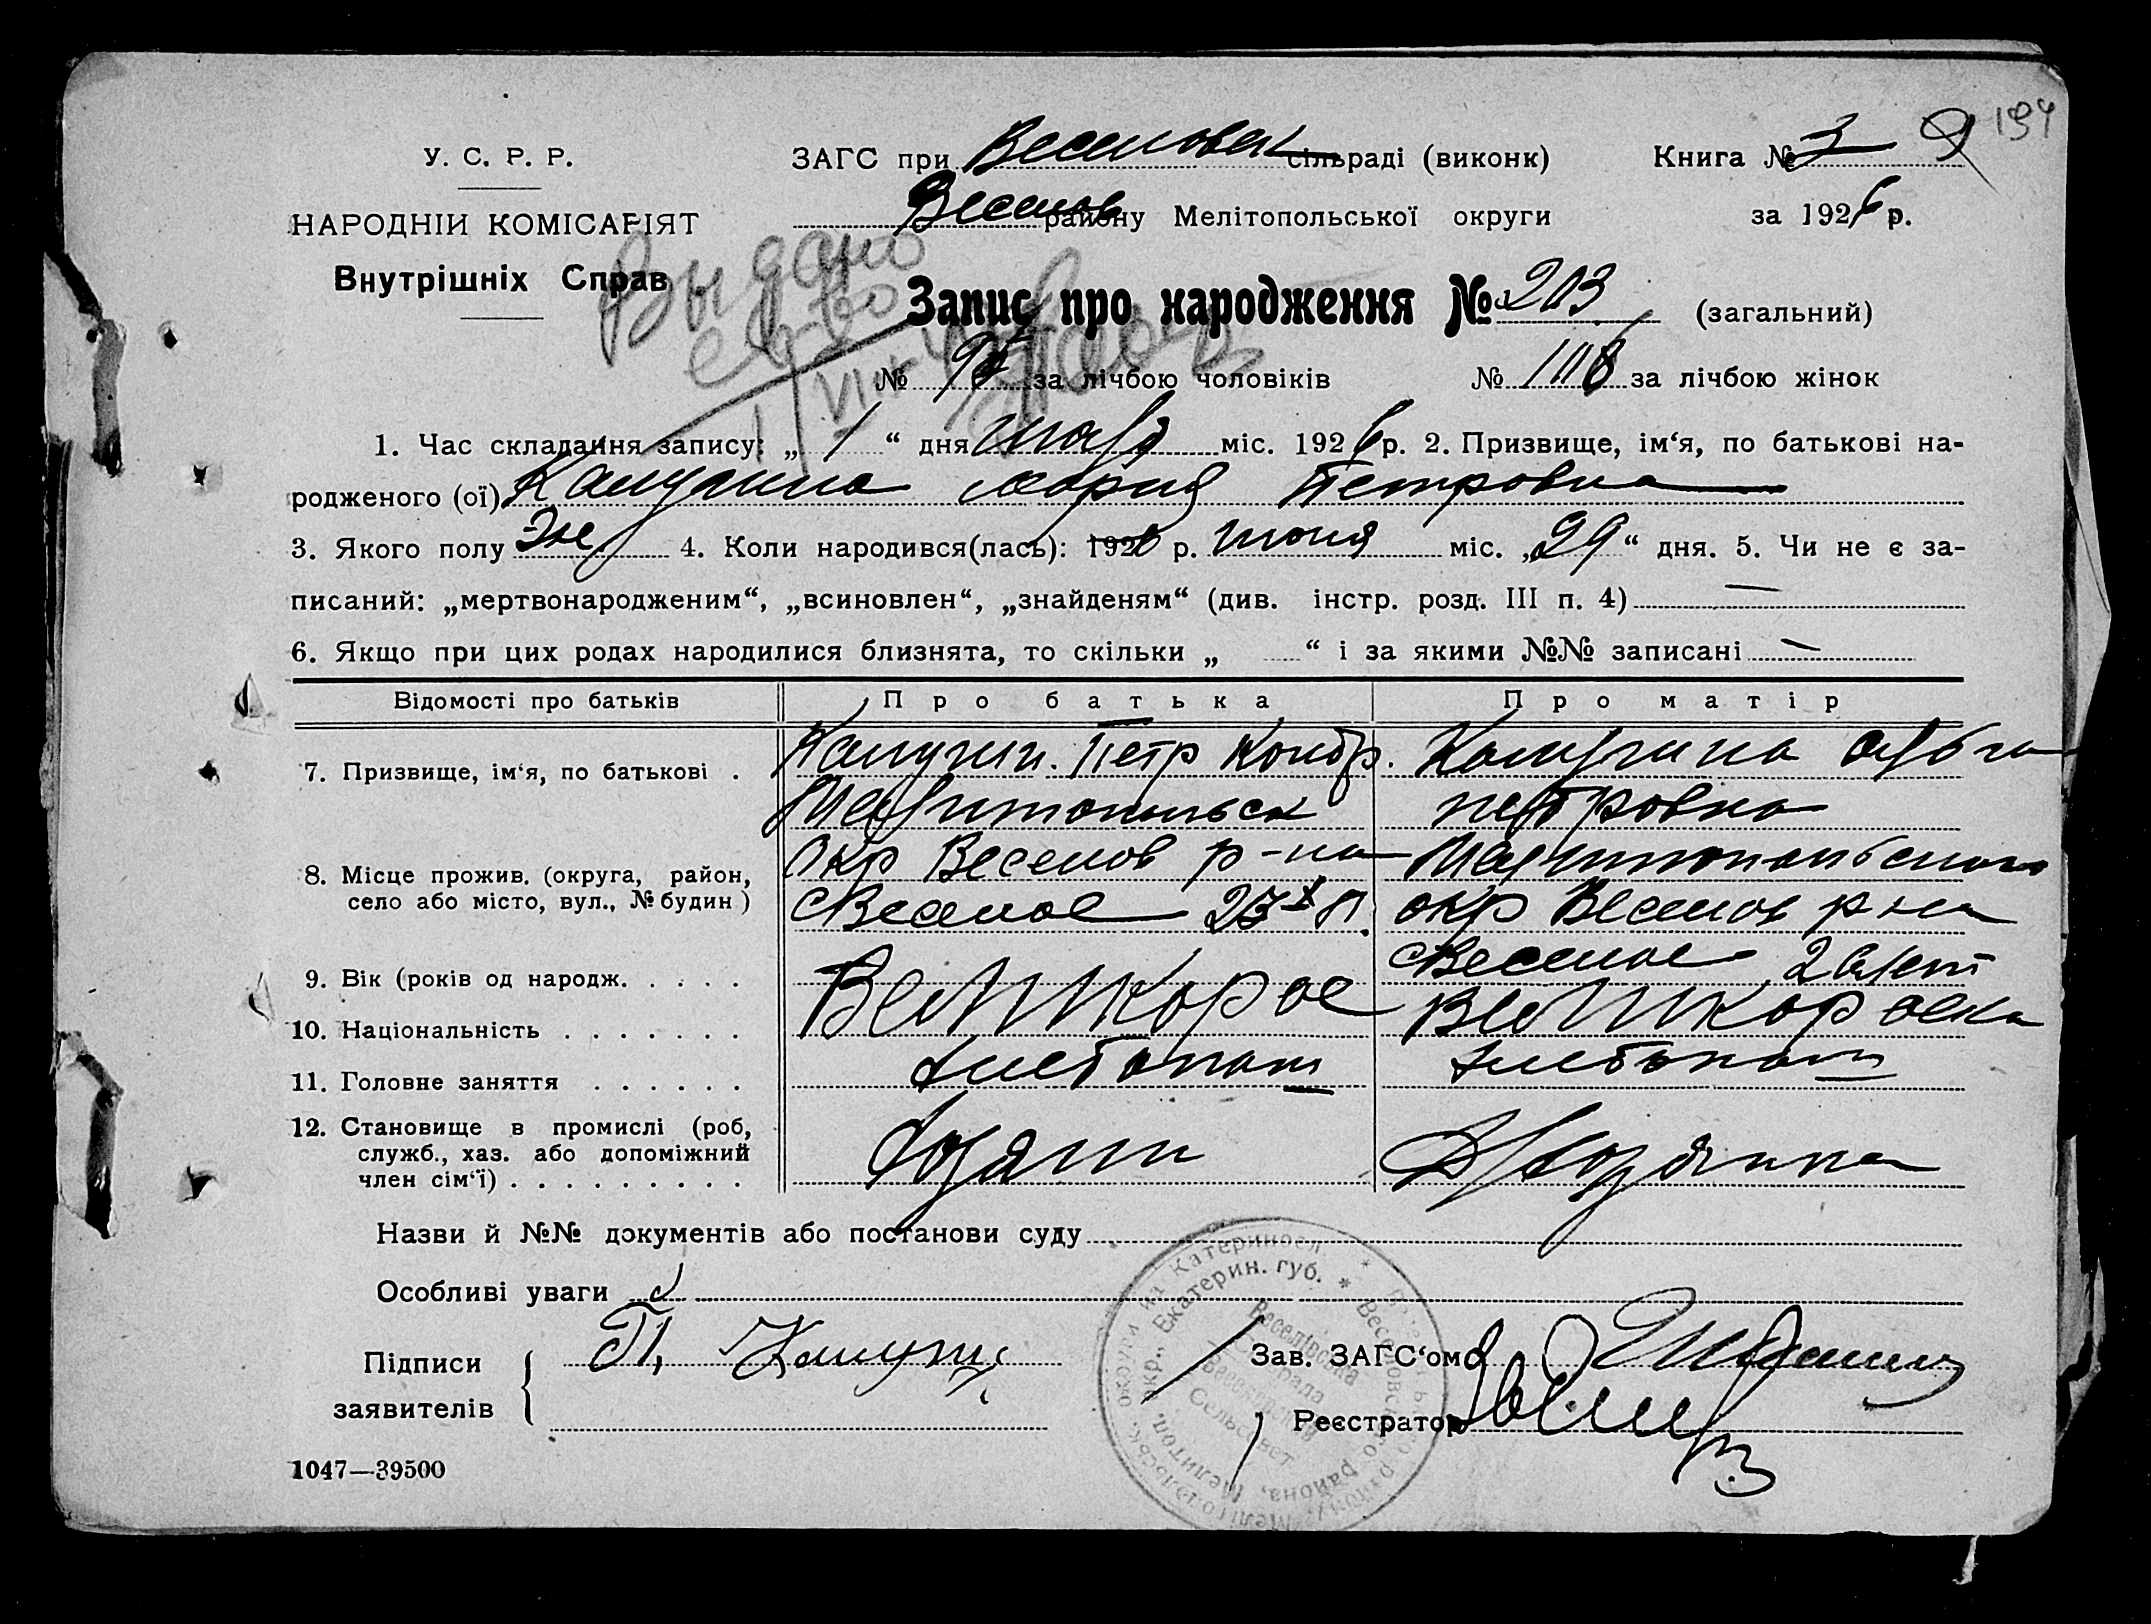 194
У. С. Р. Р.
ЗАГС при Веселовск сільраді (виконк) Книга № 3
НАРОДНІЙ КОМІСАРІЯТ
Веселов району Мелітопольської округи за 1926 р.
Внутрішніх Справ
Выдано
Запис про народження № 203 (загальний)
№ 95 за лічбою чоловіків № 108 за лічбою жінок
1. Час складання запису: „ 1 “ дня июля міс. 1926 р. 2. Призвище, ім‘я, по батькові на-
родженого (ої) Калугина Мария Петровна
3. Якого полу Жен 4. Коли народився(лась): 1926 р. июня міс. „29“ дня. 5. Чи не є за-
писаний: „мертвонародженим“, „всиновлен“, „знайденям“ (див. інстр. розд. III п. 4) —
6. Якщо при цих родах народилися близнята, то скільки „ “ і за якими №№ записані —
Відомості про батьків Про батька Про матір
7. Призвище, ім‘я, по батькові . Калугин. Петр Кондр. Калугина
Мелитопольск Петровна
8. Місце прожив. (округа, район, Окр Веселов р-на Мелитопольского
село або місто, вул., № будин) с Веселое окр Веселов р-на
9. Вік (років од народж. . . . . с Веселое 26 лет
10. Національність . . . . . . . Великорос Великороска
11. Головне заняття . . . . . . Хлебопаш Хлебопаш
12. Становище в промислі (роб,
служб., хаз. або допоміжний Хозяин Хозяйка
член сім‘ї) . . . . . . . . .
Назви й №№ документів або постанови суду
Особливі уваги
Підписи П. Калугин Зав. ЗАГС‘ом
заявителів Реєстратор
1047—39500
Катериносл.
Екатерин. губ. * Веселовского района, Мелитоп. окр.,
Веселівська
Сельсовет